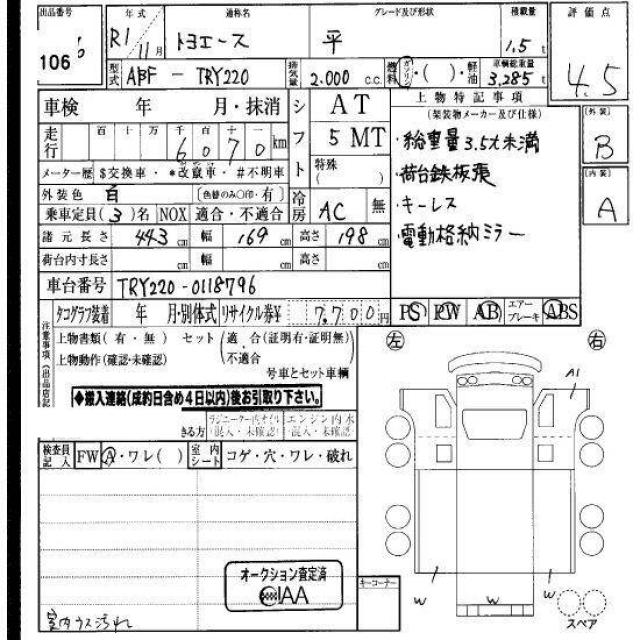 出品番号 年式 通称名 グレード及び形状 積載量 評価点
106 R1/11月 トヨエース 平 1.5t 4.5
型式 ABF-TRY220 排気量 2.000 c.c. 燃料 ガソリン・( )・軽油 車輌総重量 3,285t
車検 年 月・抹消 シフト AT 上物特記事項
(架装物メーカー及び仕様) [外装]
走行 百 十 万 千 百 十 一 5 MT B
6 0 7 0 km ・総重量3.5t未満
メーター歴 $交換車・*改竄車・#不明車 特殊( ) ・荷台鉄板張 [内装]
外装色 白 [色替のみ○印・有] 冷房 AC 無 ・キーレス A
乗車定員(3)名 NOX 適合・不適合 ・電動格納ミラー
諸元長さ 443cm 幅 169cm 高さ 198cm
荷台内寸長さ cm 幅 cm 高さ cm
車台番号 TRY220-0118796
タコグラフ装着 年 月・別体式 リサイクル券¥ 7,700円 PS PW AB エアーブレーキ ABS
注意事項(出品店記
上物書類(有・無) セット(適 合(証明有・証明無) 左 右
上物動作(確認・未確認) 不適合
号車とセット車輌 A1
◆搬入連絡(成約日含め4日以内)後お引取り下さい。
ラジエーター内オイル エンジン内水
きる方 (混入・未確認) (混入・未確認)
検査員記入 FW A・ワレ( ) 室内シート コゲ・穴・ワレ・破れ
オークション査定済
IAA
キーコーナー
W W W
室内ウス汚れ スペア